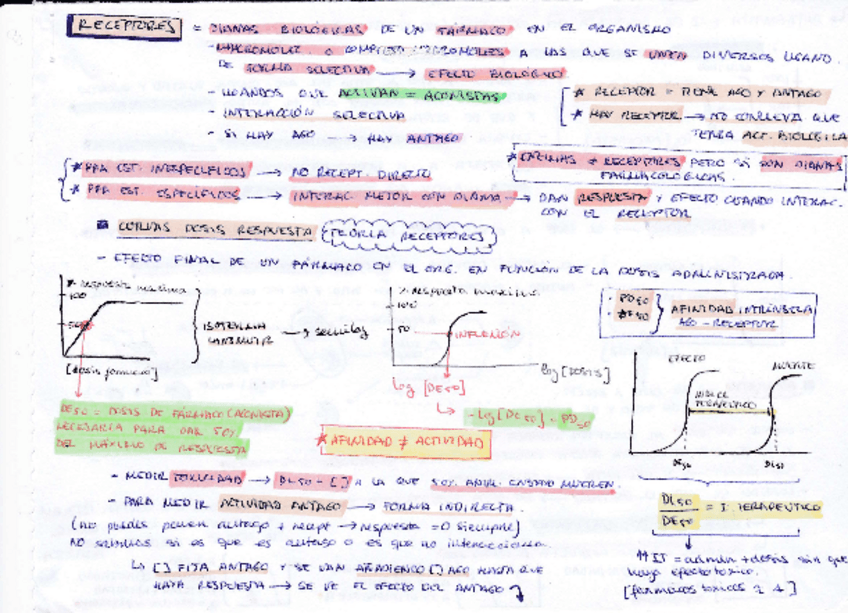 RECEPTORES = DIANAS BIOLÓGICAS DE UN FÁRMACO EN EL ORGANISMO
- MACROMOLEC. O COMPLEJO MACROMOLEC. A LAS QUE SE UNEN DIVERSOS LIGAND.
DE FORMA SELECTIVA → EFECTO BIOLÓGICO
- LIGANDOS QUE ACTIVAN = AGONISTAS
- INTERACCIÓN SELECTIVA
- SI HAY AGO → HAY ANTAGO
* RECEPTOR = TIENE AGO Y ANTAGO
* HAY RECEPTOR → NO CONLLEVA QUE
TENGA ACT. BIOLÓGICA
* ENZIMAS ≠ RECEPTORES PERO SÍ SON DIANAS
FARMACOLÓGICAS.
* PPA EST. INESPECÍFICOS → NO RECEPT. DIRECTO
* PPA EST. ESPECÍFICOS → INTERAC. MEJOR CON DIANA → DAN RESPUESTA Y EFECTO CUANDO INTERAC.
CON EL RECEPTOR
CURVAS DOSIS RESPUESTA (TEORÍA RECEPTORES)
- EFECTO FINAL DE UN FÁRMACO EN EL ORG. EN FUNCIÓN DE LA DOSIS ADMINISTRADA.
% respuesta máxima
100
50
[dosis fármaco]
ISOTERMA
LANGMUIR
→ semilog
% respuesta máxima.
100
50
INFLEXIÓN
log [DOSIS]
log [DE50]
- log [DE50] = PD50
· PD50
· DE50
AFINIDAD INTRÍNSECA
AGO - RECEPTOR
EFECTO
MUERTE
ÍNDICE
TERAPÉUTICO
DE50
DL50
DE50 = DOSIS DE FÁRMACO (AGONISTA)
NECESARIA PARA DAR 50%
DEL MÁXIMO DE RESPUESTA
* AFINIDAD ≠ ACTIVIDAD
- MEDIR TOXICIDAD → DL50 - [ ] A LA QUE 50% ANIM. ENSAYO MUEREN.
- PARA MEDIR ACTIVIDAD ANTAGO → FORMA INDIRECTA
(no puedes poner antago + recept → respuesta = 0 siempre)
NO sabemos si es que es antago o es que no interacciona.
↳ [ ] FIJA ANTAGO Y SE VAN AÑADIENDO [ ] AGO HASTA QUE
HAYA RESPUESTA → SE VE EL EFECTO DEL ANTAGO
DL50
DE50
= I. TERAPÉUTICO
IT = admin. + dosis sin que
haya efecto tóxico.